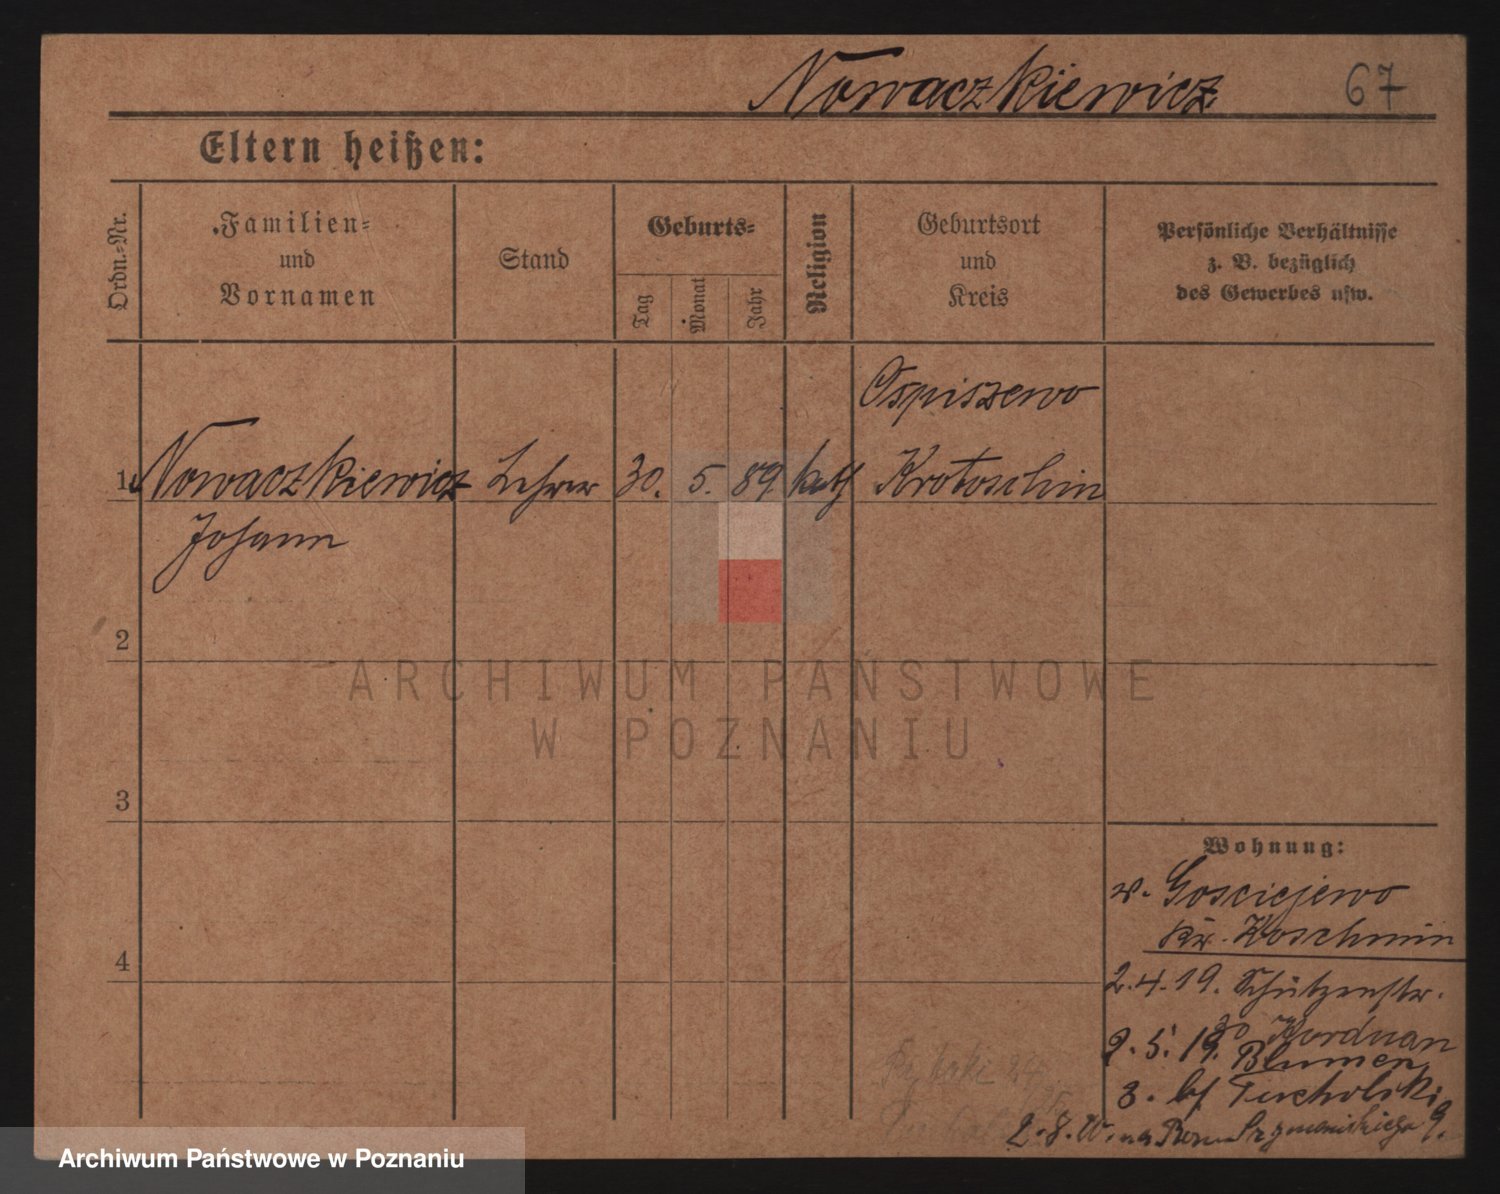 Nowaczkiewicz 67
Eltern heißen:
Ordn.-Nr.
Familien-
und
Vornamen
Stand
Geburts-
Tag
Monat
Jahr
Religion
Geburtsort
und
Kreis
Persönliche Verhältnisse
z. B. bezüglich
des Gewerbes usw.
Ospiszewo
1. Nowaczkiewicz Lehrer 30. 5. 89 kath Krotoschin
Johann
2
ARCHIWUM PAŃSTWOWE
W POZNANIU
3
Wohnung:
v. Gosciejewo
Kr. Koschmin
4
2.4.19. Schützenstr.
30 Korduan
2.5.19. Blumen
3. bf Tucholski
2.8.20. na 9.
Archiwum Państwowe w Poznaniu